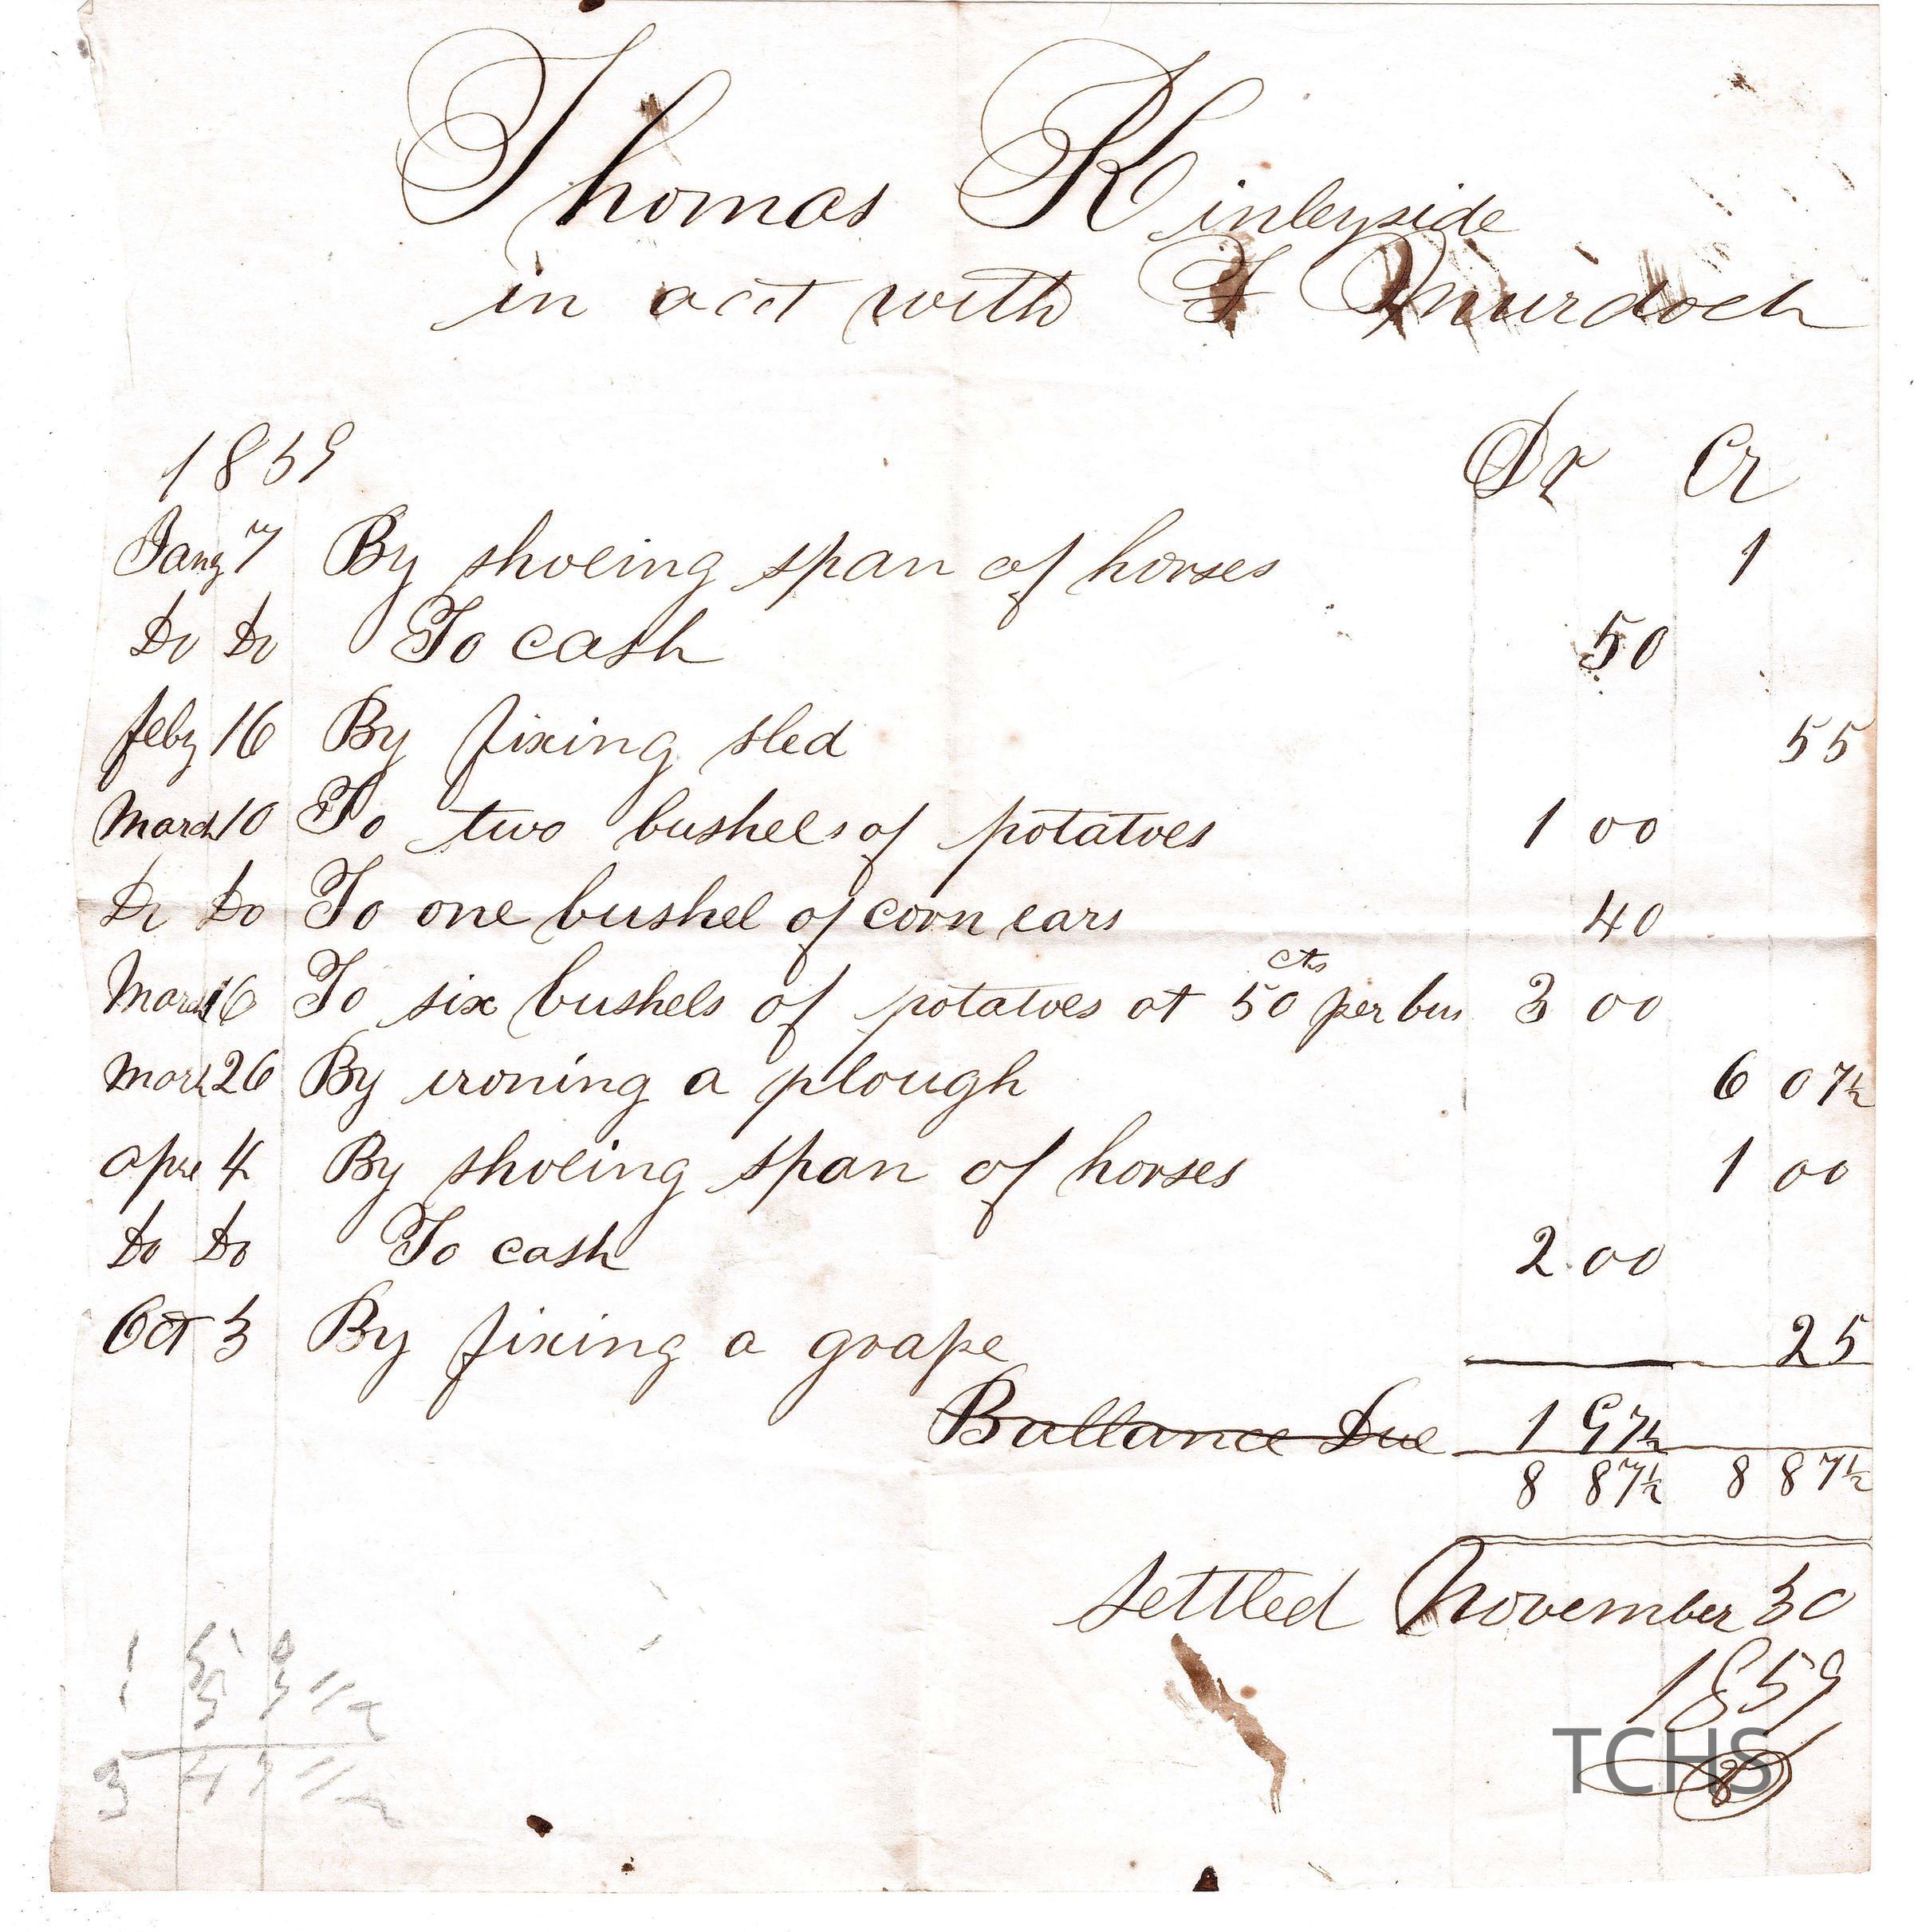 Thomas Kinleyside
in acct with F Murdoch
1859 Dr Cr
Jany 7 By shoeing span of horses 1
Do Do To cash 50
Feby 16 By fixing sled 55
March 10 To two bushels of potatoes 1 00
Do Do To one bushel of corn ears 40
March 16 To six bushels of potatoes at 50 cts per bus 3 00
March 26 By ironing a plough 6 07½
Apre 4 By shoeing span of horses 1 00
Do Do To cash 2 00
Oct 3 By fixing a grape 25
Ballance Due 1 97½
8 87½ 8 87½
settled November 30
1859
TCHS